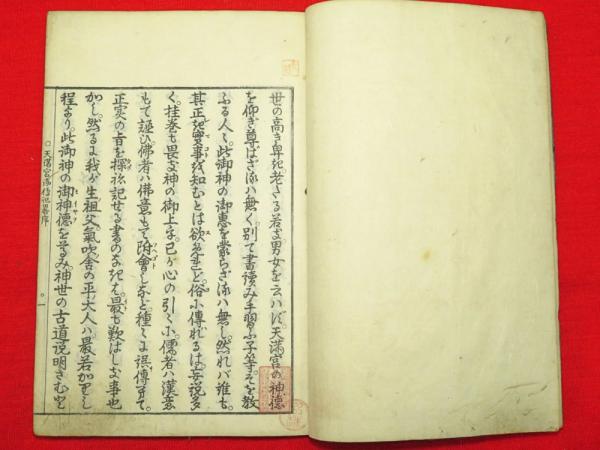 世の高き卑き老たる若き男女を云ハず天満宮の神徳
を仰ぎ尊はざるハ無く別て書読み手習ふ子等そを教
ふる人〻此御神の御恵を蒙らざるハ無し然れバ誰も
其正き実事を知むとは欲すれど俗小傳れるは妄説多
く挂巻も畏き神の御上を己が心の引〻に儒者ハ漢意
もて誣ひ佛者ハ佛意もて附會しなど種〻に誤傳
正実の旨を探ね記せる書のなきは最も歎はしき事也
かし然るに我が生祖父氣吹舎の平大人ハ最若かりし
程より此御神の御神徳を神世の古道説明さむと
天満宮御傳記畧序
一